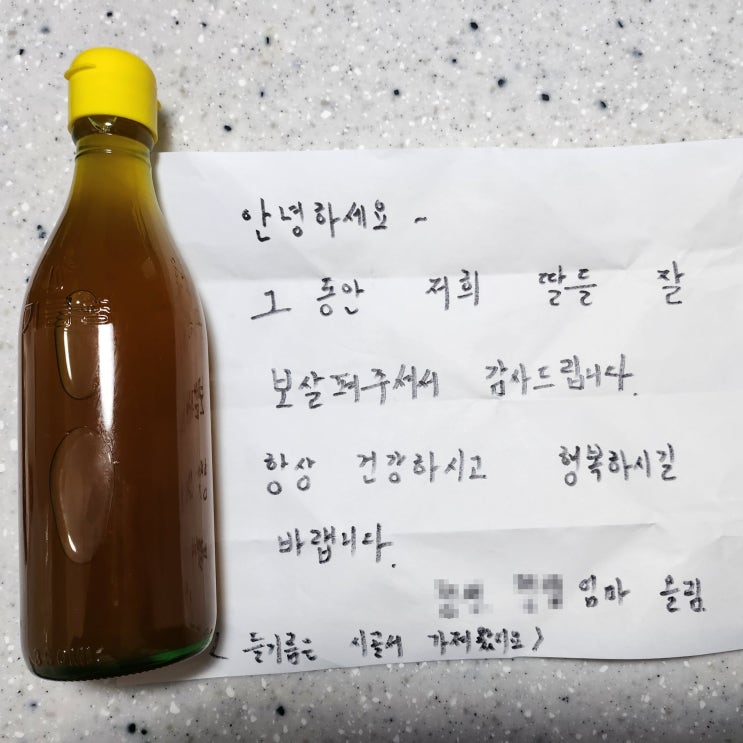 안녕하세요~
그 동안 저희 딸들 잘
보살펴주셔서 감사드립니다.
항상 건강하시고 행복하시길
바랍니다.
엄마 올림
< 들기름은 시골서 가져왔어요 >